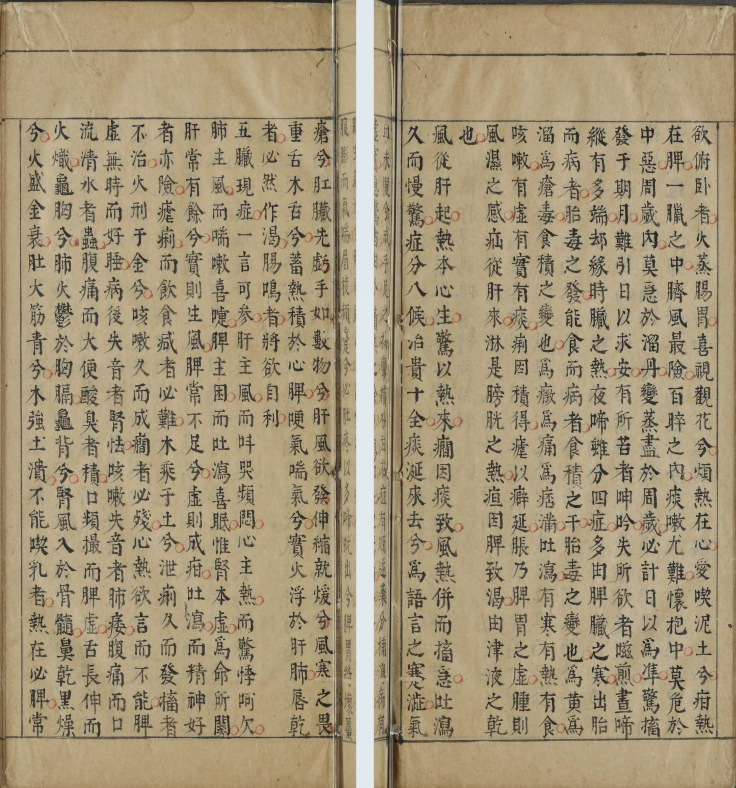 欲俯卧者火蒸腸胃喜視觀花兮煩熱在心愛喫泥土兮疳熱
在脾一臘之中臍風最險百晬之內痰嗽尤難懷抱中莫危於
中惡周歲內莫惡於溜丹變蒸盡於周歲必計日以爲準驚搐
發于期月難引日以求安有所苦者呻吟失所欲者啾煎晝啼
縱有多端却緣時臟之熱夜啼雖分四症多由脾臟之寒出胎
而病者胎毒之發能食而病者食積之干胎毒之變也爲黃爲
溜爲瘡毒食積之變也爲癥爲痛爲痞滿吐瀉有寒有熱有食
咳嗽有虛有實有痰痢因積得瘧以癖延脹乃脾胃之虛腫則
風濕之感疝從肝來淋是膀胱之熱疸因脾致渴由津液之乾
也
風從肝起熱本心生驚以熱來癇因痰致風熱併而搐急吐瀉
久而慢驚症分八候治貴十全痰涎來去兮爲語言之蹇澁氣
瘡兮肛臟先虧手如數物兮肝風欲發伸縮就煖兮風寒之畏
重舌木舌兮蓄熱積於心脾哽氣喘氣兮實火浮於肝肺唇乾
者必然作渴腸鳴者將欲自利
五臟現症一言可参肝主風而呌哭頻悶心主熱而驚悸呵欠
肺主風而喘嗽喜嚏脾主困而吐瀉喜眠惟腎本虛爲命所關
肝常有餘兮實則生風脾常不足兮虛則成疳吐瀉而精神好
者亦險瘧痢而飲食减者必難木乘于土兮泄痢久而發搐者
不治火刑于金兮咳嗽久而成癇者必殘心熱欲言而不能脾
虛無時而好睡病後失音者腎怯咳嗽失音者肺痿腹痛而口
流清水者蟲腹痛而大便酸臭者積口頻撮而脾虛舌長伸而
火熾龜胸兮肺火鬱於胸膈龜背兮腎風入於骨髓鼻乾黑燥
兮火盛金衰肚大筋青兮木強土潰不能喫乳者熱在必脾常